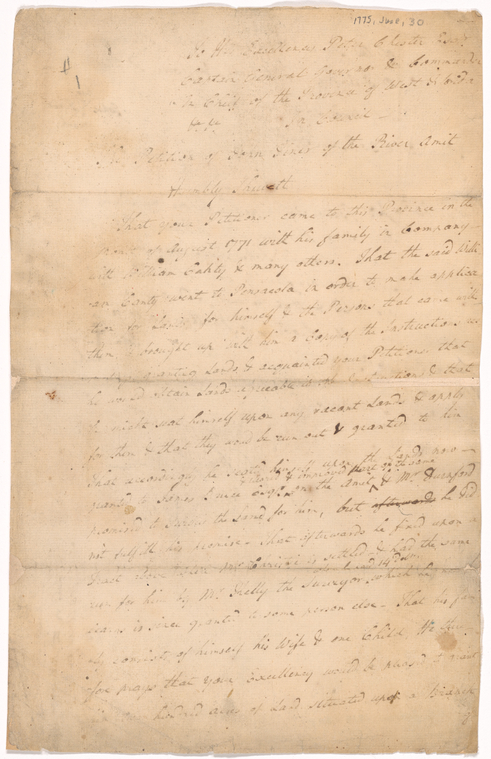 1775, June, 30
# 1
To His Excellency Peter Chester Esqr
Captain General Governor & Commander
in Chief of the Province of West Florida
&c &c In Council
The Petition of John of the River Amit
Humbly Sheweth
That your Petitioner came to this Province in the
month of August 1771 with his family in Company
with William Canty & many others. That the said Willi
am Canty went to Pensacola in order to make applica
tion for Lands for himself & the Persons that came with
him & brought up with him a Copy of the Instructions
granting Lands & acquainted your Petitioner that
he could obtain Lands agreeable to & that
he might seat himself upon any vacant Lands & apply
for them & that they would be run out & granted to him
That accordingly he seated himself upon the Lands now
granted to since on the Amit & Mr Durnford
& improved part of the same
promised to survey the same for him, but afterwards he did
not fulfill his promise. That afterwards he fixed upon a
Tract where Mr is settled & had the same
run for him by Mr the Surveyor, which he
is since granted to some person else. That his fam
ily consist of himself his Wife & one Child. He there
fore prays that your Excellency would be pleased to grant
him hundred acres of Land situated upon a Branch